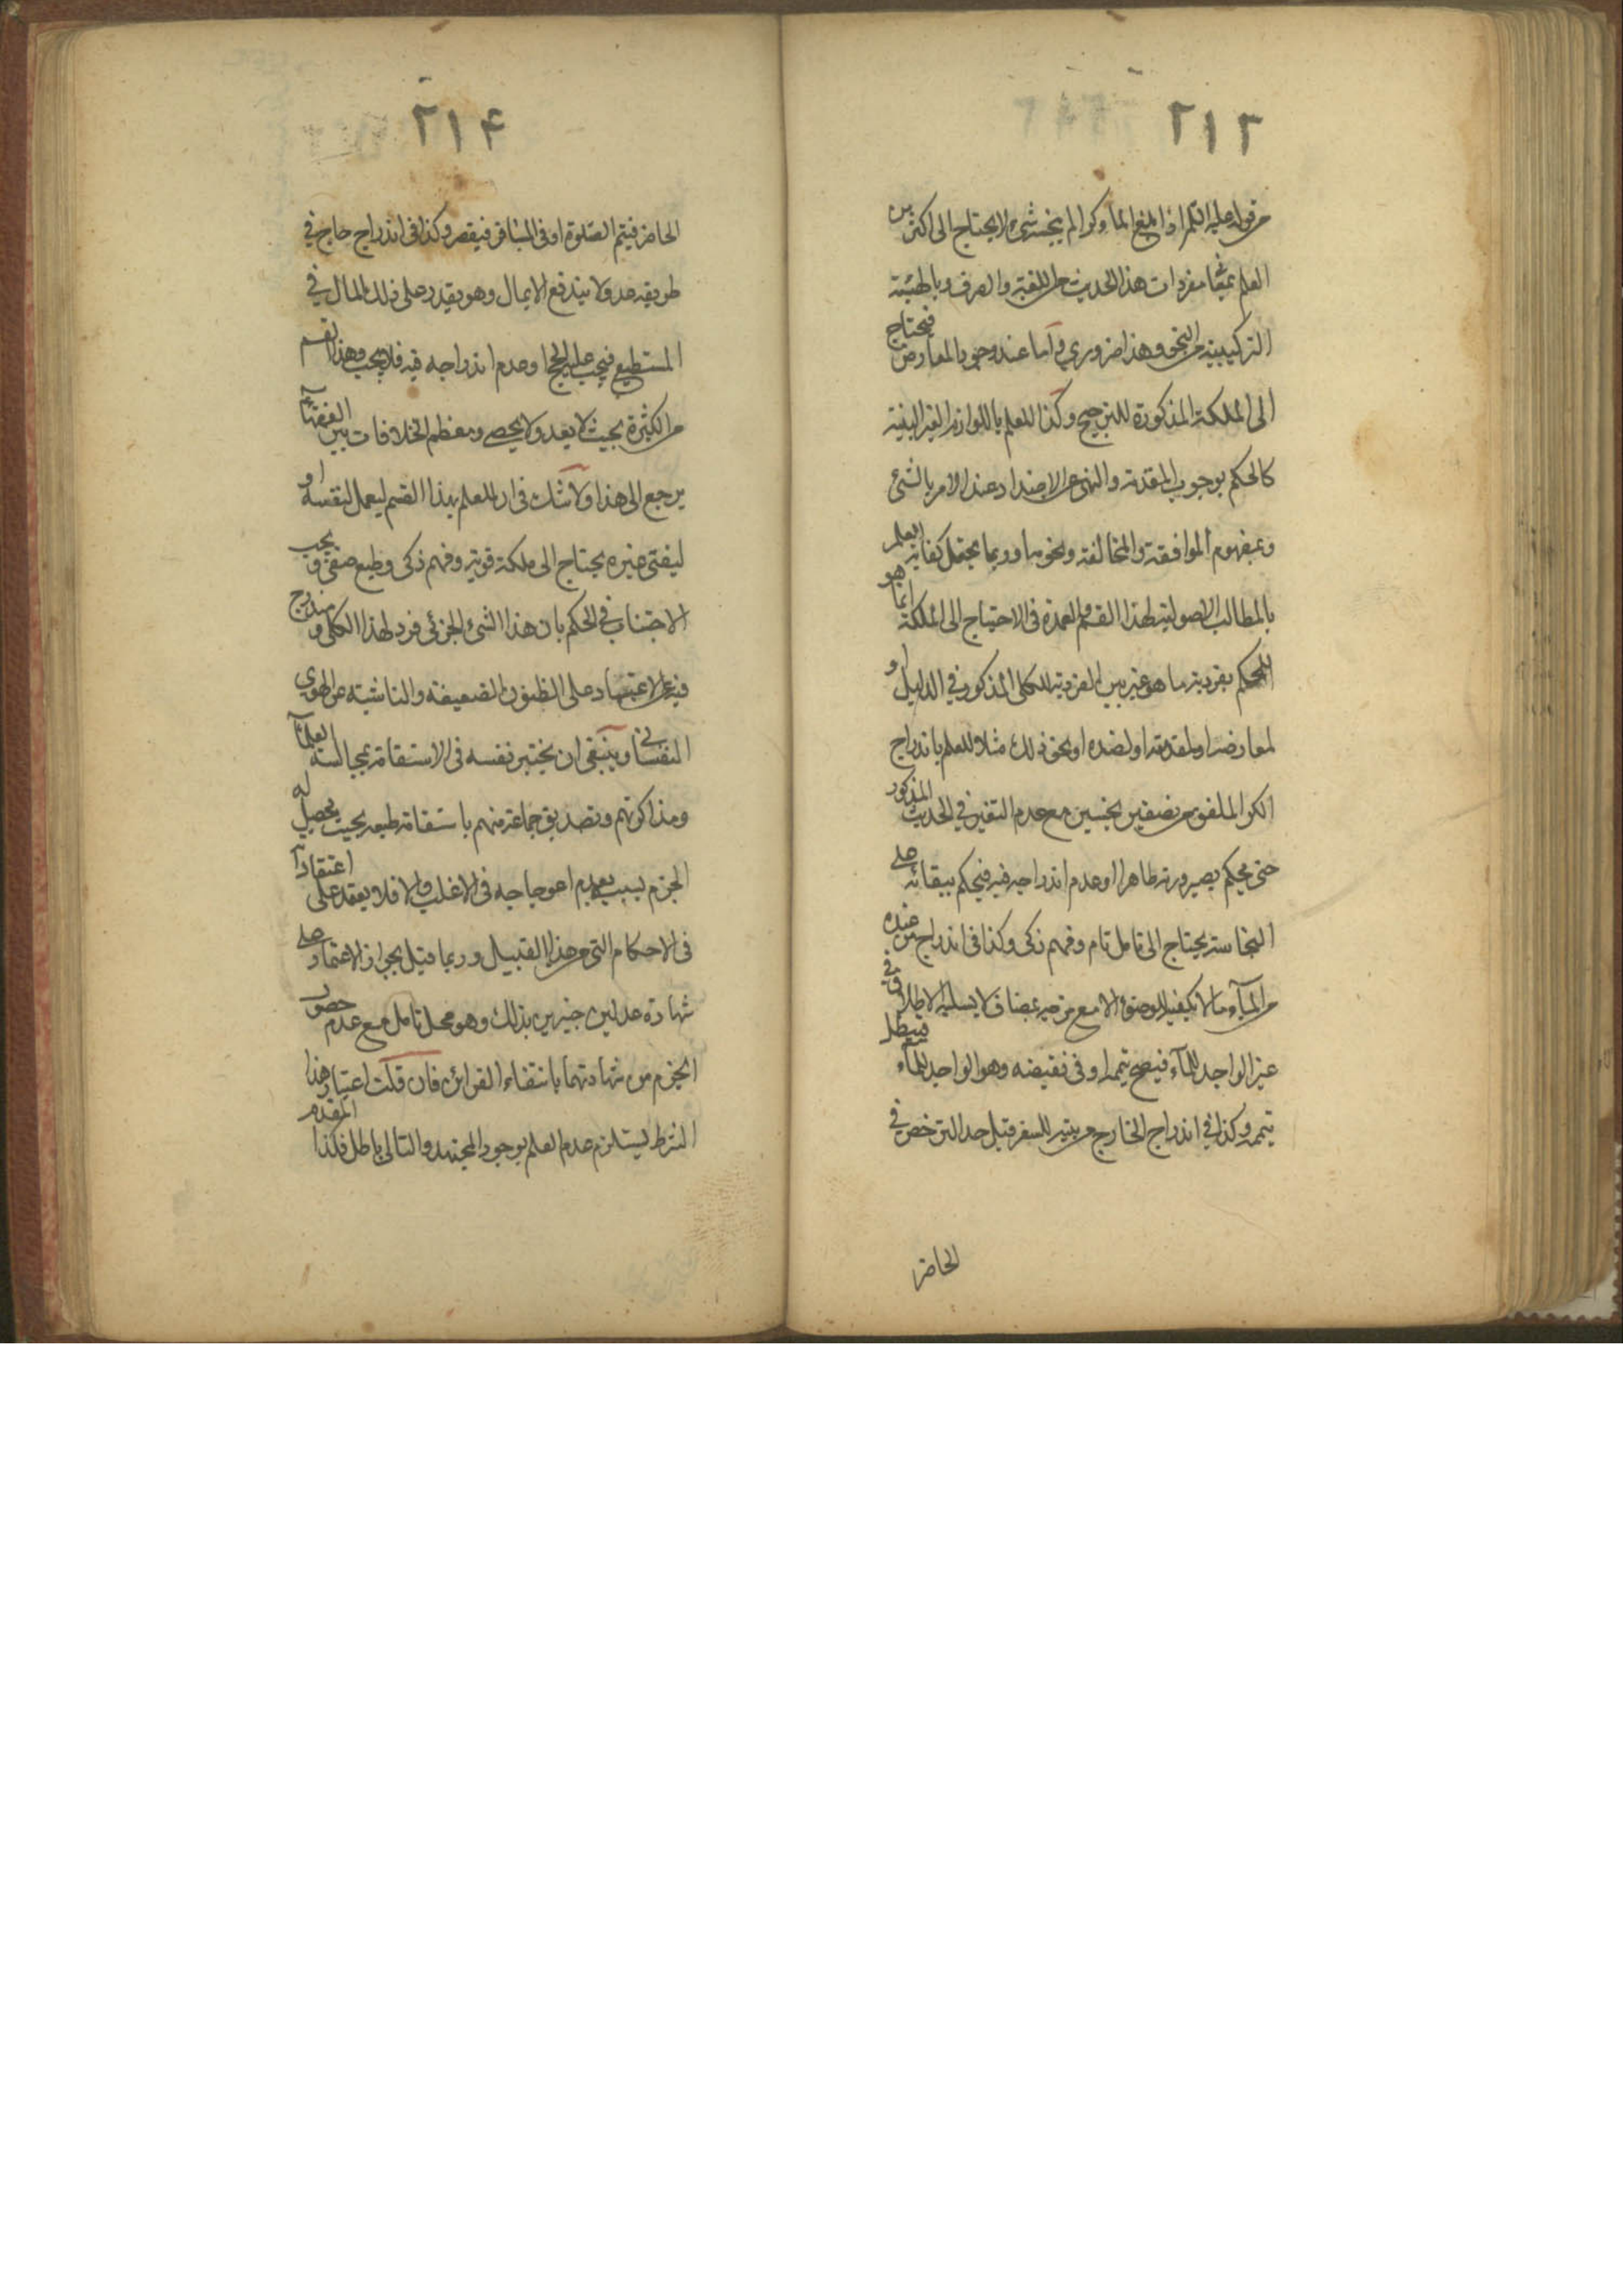 ٢١٣
من قوله عليه السلم اذا بلغ الماء كرا لم ينجسه شيء لا يحتاج الى اكثر من
العلم بمعاني مفردات هذا الحديث من اللغة والعرف وبالهيئة
التركيبية من النحو وهذا ضروري واما عند وجود المعارض فيحتاج
الى الملكة المذكورة للترجيح وكذا للعلم باللوازم الغير البينة
كالحكم بوجوب المقدمة والنهى عن الاضداد عند الامر بالشئ
وبمفهوم الموافقة والمخالفة ونحوها وربما يحتمل كفاية العلم
بالمطالب الاصولية لهذا القسم والعمدة فى الاحتياج الى الملكة انما هو
للحكم بفردية ما هو غير بين الفردية للكلى المذكور في الدليل او
لمعارضه او لمقدمته او لضده او نحو ذلك مثلا للعلم باندراج
الكر الملفق من نصفين نجسين مع عدم التغير في الحديث المذكور
حتى يحكم بصيرورته طاهرا او عدم اندراجه فيه فيحكم ببقائه على
النجاسة يحتاج الى تامل تام وفهم ذكى وكذا فى اندراج من عنده
من الماء ما لا يكفيه للوضوء الا مع مزجه بمضاف لا يسلبه الاطلاق في
غير الواجد للماء فيصح تيممه او فى نقيضه وهو الواجد للماء فيبطل
تيممه وكذا في اندراج الخارج من بيته للسفر قبل حد الترخص في
الحاضر
٢١۴
الحاضر فيتم الصلوة او فى المسافر فيقصر وكذا فى اندراج حاج في
طريقه عدو لا يندفع الا بمال وهو يقدر على ذلك المال في
المستطيع فيجب عليه الحج او عدم اندراجه فيه فلا يجب وهذا القسم
من الكثرة بحيث لا يعد ولا يحصى ومعظم الخلافات بين الفقهاء
يرجع الى هذا ولا شك فى ان للعلم بهذا القسم ليعمل لنفسه او
ليفتى غيره يحتاج الى ملكة قوية وفهم ذكى وطبع صفى ويجب
الاجتناب في الحكم بان هذا الشئ الجزئى فرد لهذا الكلى ومندرج
فيه عن الاعتماد على الظنون الضعيفة والناشية عن الهوى
النفسانى وينبغى ان يختبر نفسه فى الاستقامة بمجالسة العلماء
ومذاكرتهم وتصديق جماعة منهم باستقامة طبعه بحيث يحصل له
الجزم بسببه بعدم اعوجاجه فى الاغلب والا فلا يعتمد على اعتقاداته
فى الاحكام التى من هذا القبيل وربما قيل بجواز الاعتماد على
شهادة عدلين خبيرين بذلك وهو محل تامل مع عدم حصول
الجزم من شهادتهما بانتفاء القرائن فان قلت اعتبار هذا
الشرط يستلزم عدم العلم بوجود المجتهد والتالى باطل فكذا المقدم